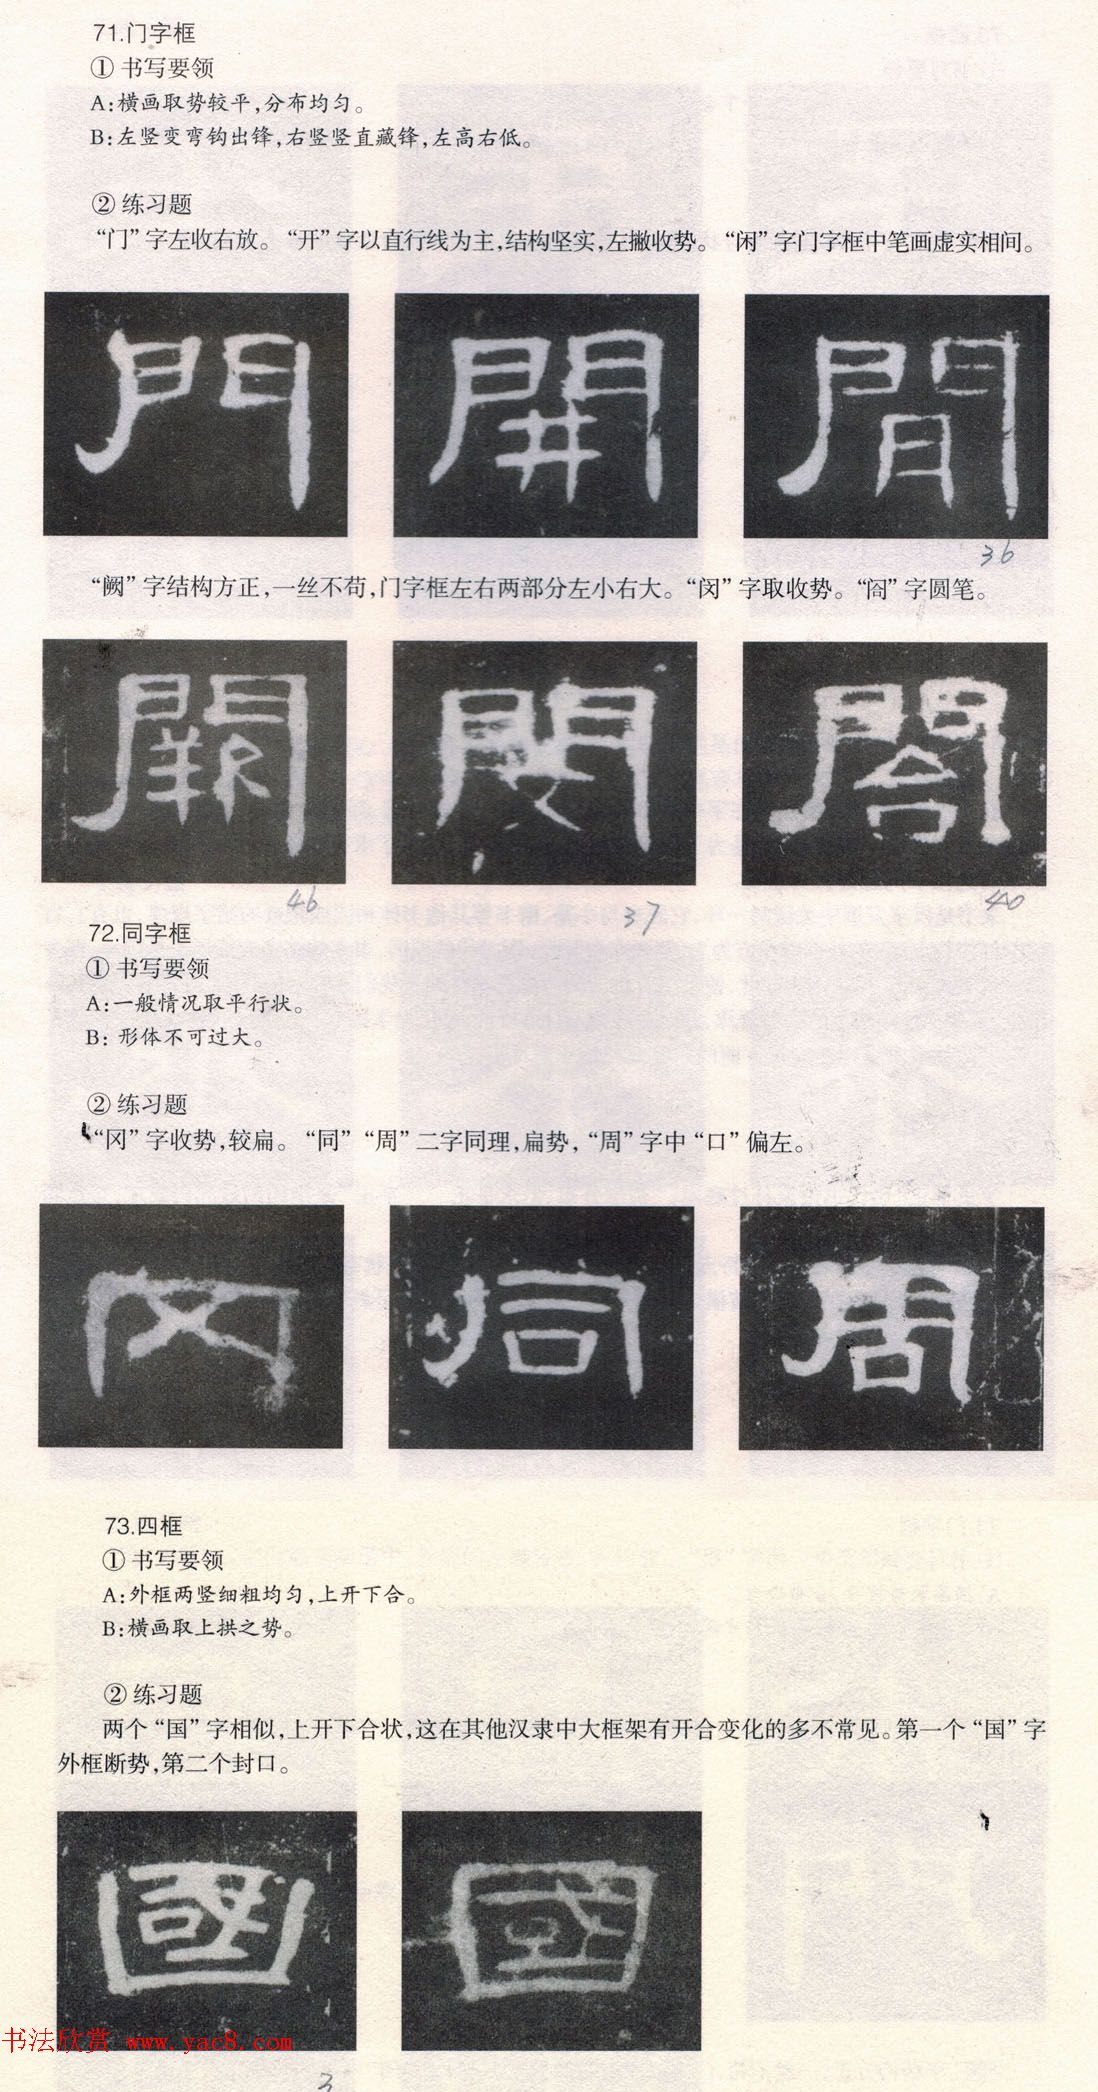 71.门字框
① 书写要领
A:横画取势较平,分布均匀。
B:左竖变弯钩出锋,右竖竖直藏锋,左高右低。
② 练习题
“门”字左收右放。“开”字以直行线为主,结构坚实,左撇收势。“闲”字门字框中笔画虚实相间。
門 開 閒
36
“阙”字结构方正,一丝不苟,门字框左右两部分左小右大。“闵”字取收势。“閤”字圆笔。
闕 閔 閤
46 37 40
72.同字框
① 书写要领
A:一般情况取平行状。
B: 形体不可过大。
② 练习题
“冈”字收势,较扁。“同”“周”二字同理,扁势,“周”字中“口”偏左。
同 周
73.四框
① 书写要领
A:外框两竖细粗均匀,上开下合。
B:横画取上拱之势。
② 练习题
两个“国”字相似,上开下合状,这在其他汉隶中大框架有开合变化的多不常见。第一个“国”字
外框断势,第二个封口。
國 國
书法欣赏 www.yac8.com
3